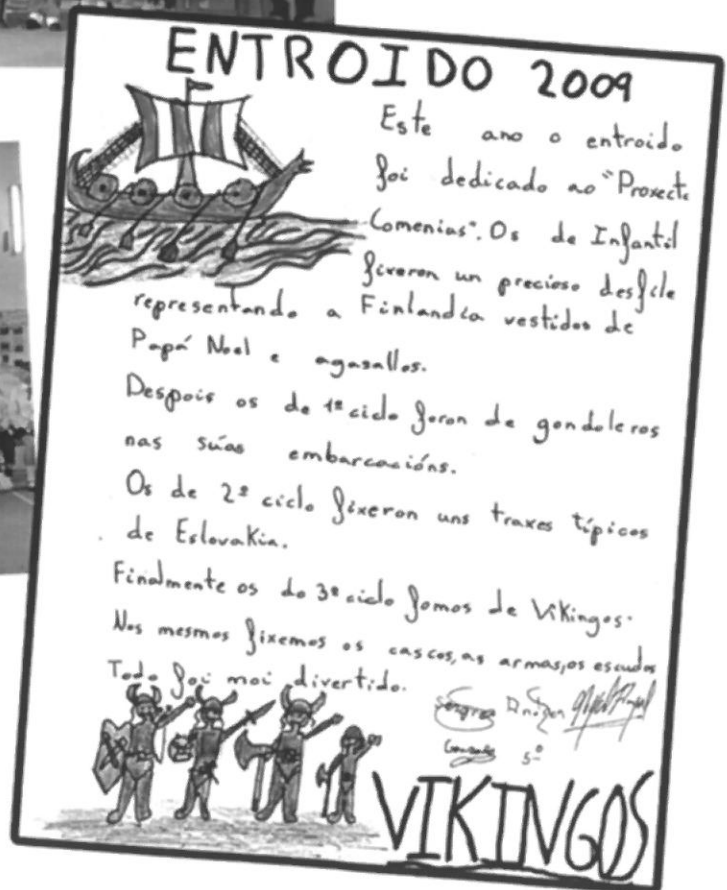 ENTROIDO 2009
Este ano o entroido
foi dedicado ao "Proxecto
Comenius". Os de Infantil
fixeron un precioso desfile
representando a Finlandia vestidos de
Papá Noel e agasallos.
Despois os de 1º ciclo foron de gondoleros
nas súas embarcacións.
Os de 2º ciclo fixeron uns traxes típicos
de Eslovakia.
Finalmente os do 3º ciclo fomos de Vikingos.
Nos mesmos fixemos os cascos, as armas, os escudos
Todo foi moi divertido.
5º
VIKINGOS